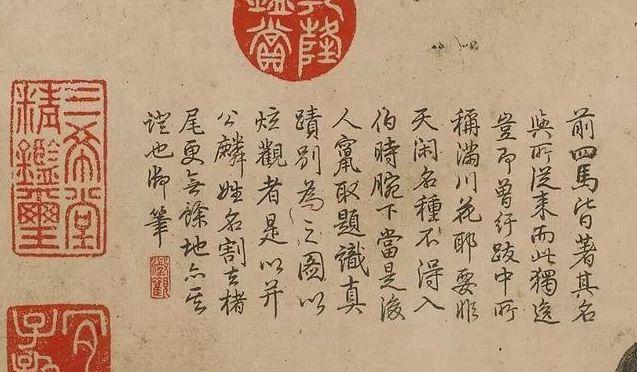 乾隆
鑑賞
前四馬皆著其名
與所從來而此獨逸
豈即曾紆跋中所
稱滿川花耶要非
天閑名種不得入
伯時腕下當是後
人竄取題識真
蹟別為之圖以
炫觀者是以并
公麟姓名割去楮
尾更無餘地亦其
證也御筆
三希堂
精鑑璽
宜
子孫